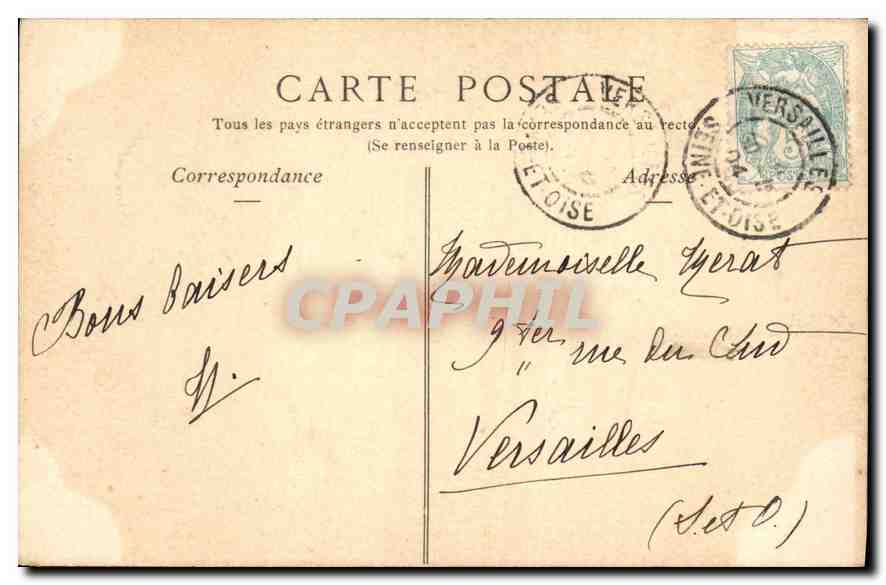 CARTE POSTALE
Tous les pays étrangers n'acceptent pas la correspondance au recto.
(Se renseigner à la Poste).
Correspondance
Adresse
VERSAILLES
04
SEINE-ET-OISE
ET-OISE
Bons baisers
M.
Mademoiselle Merat
9 ter rue du Sud
Versailles
(S. et O.)
CPAPHIL